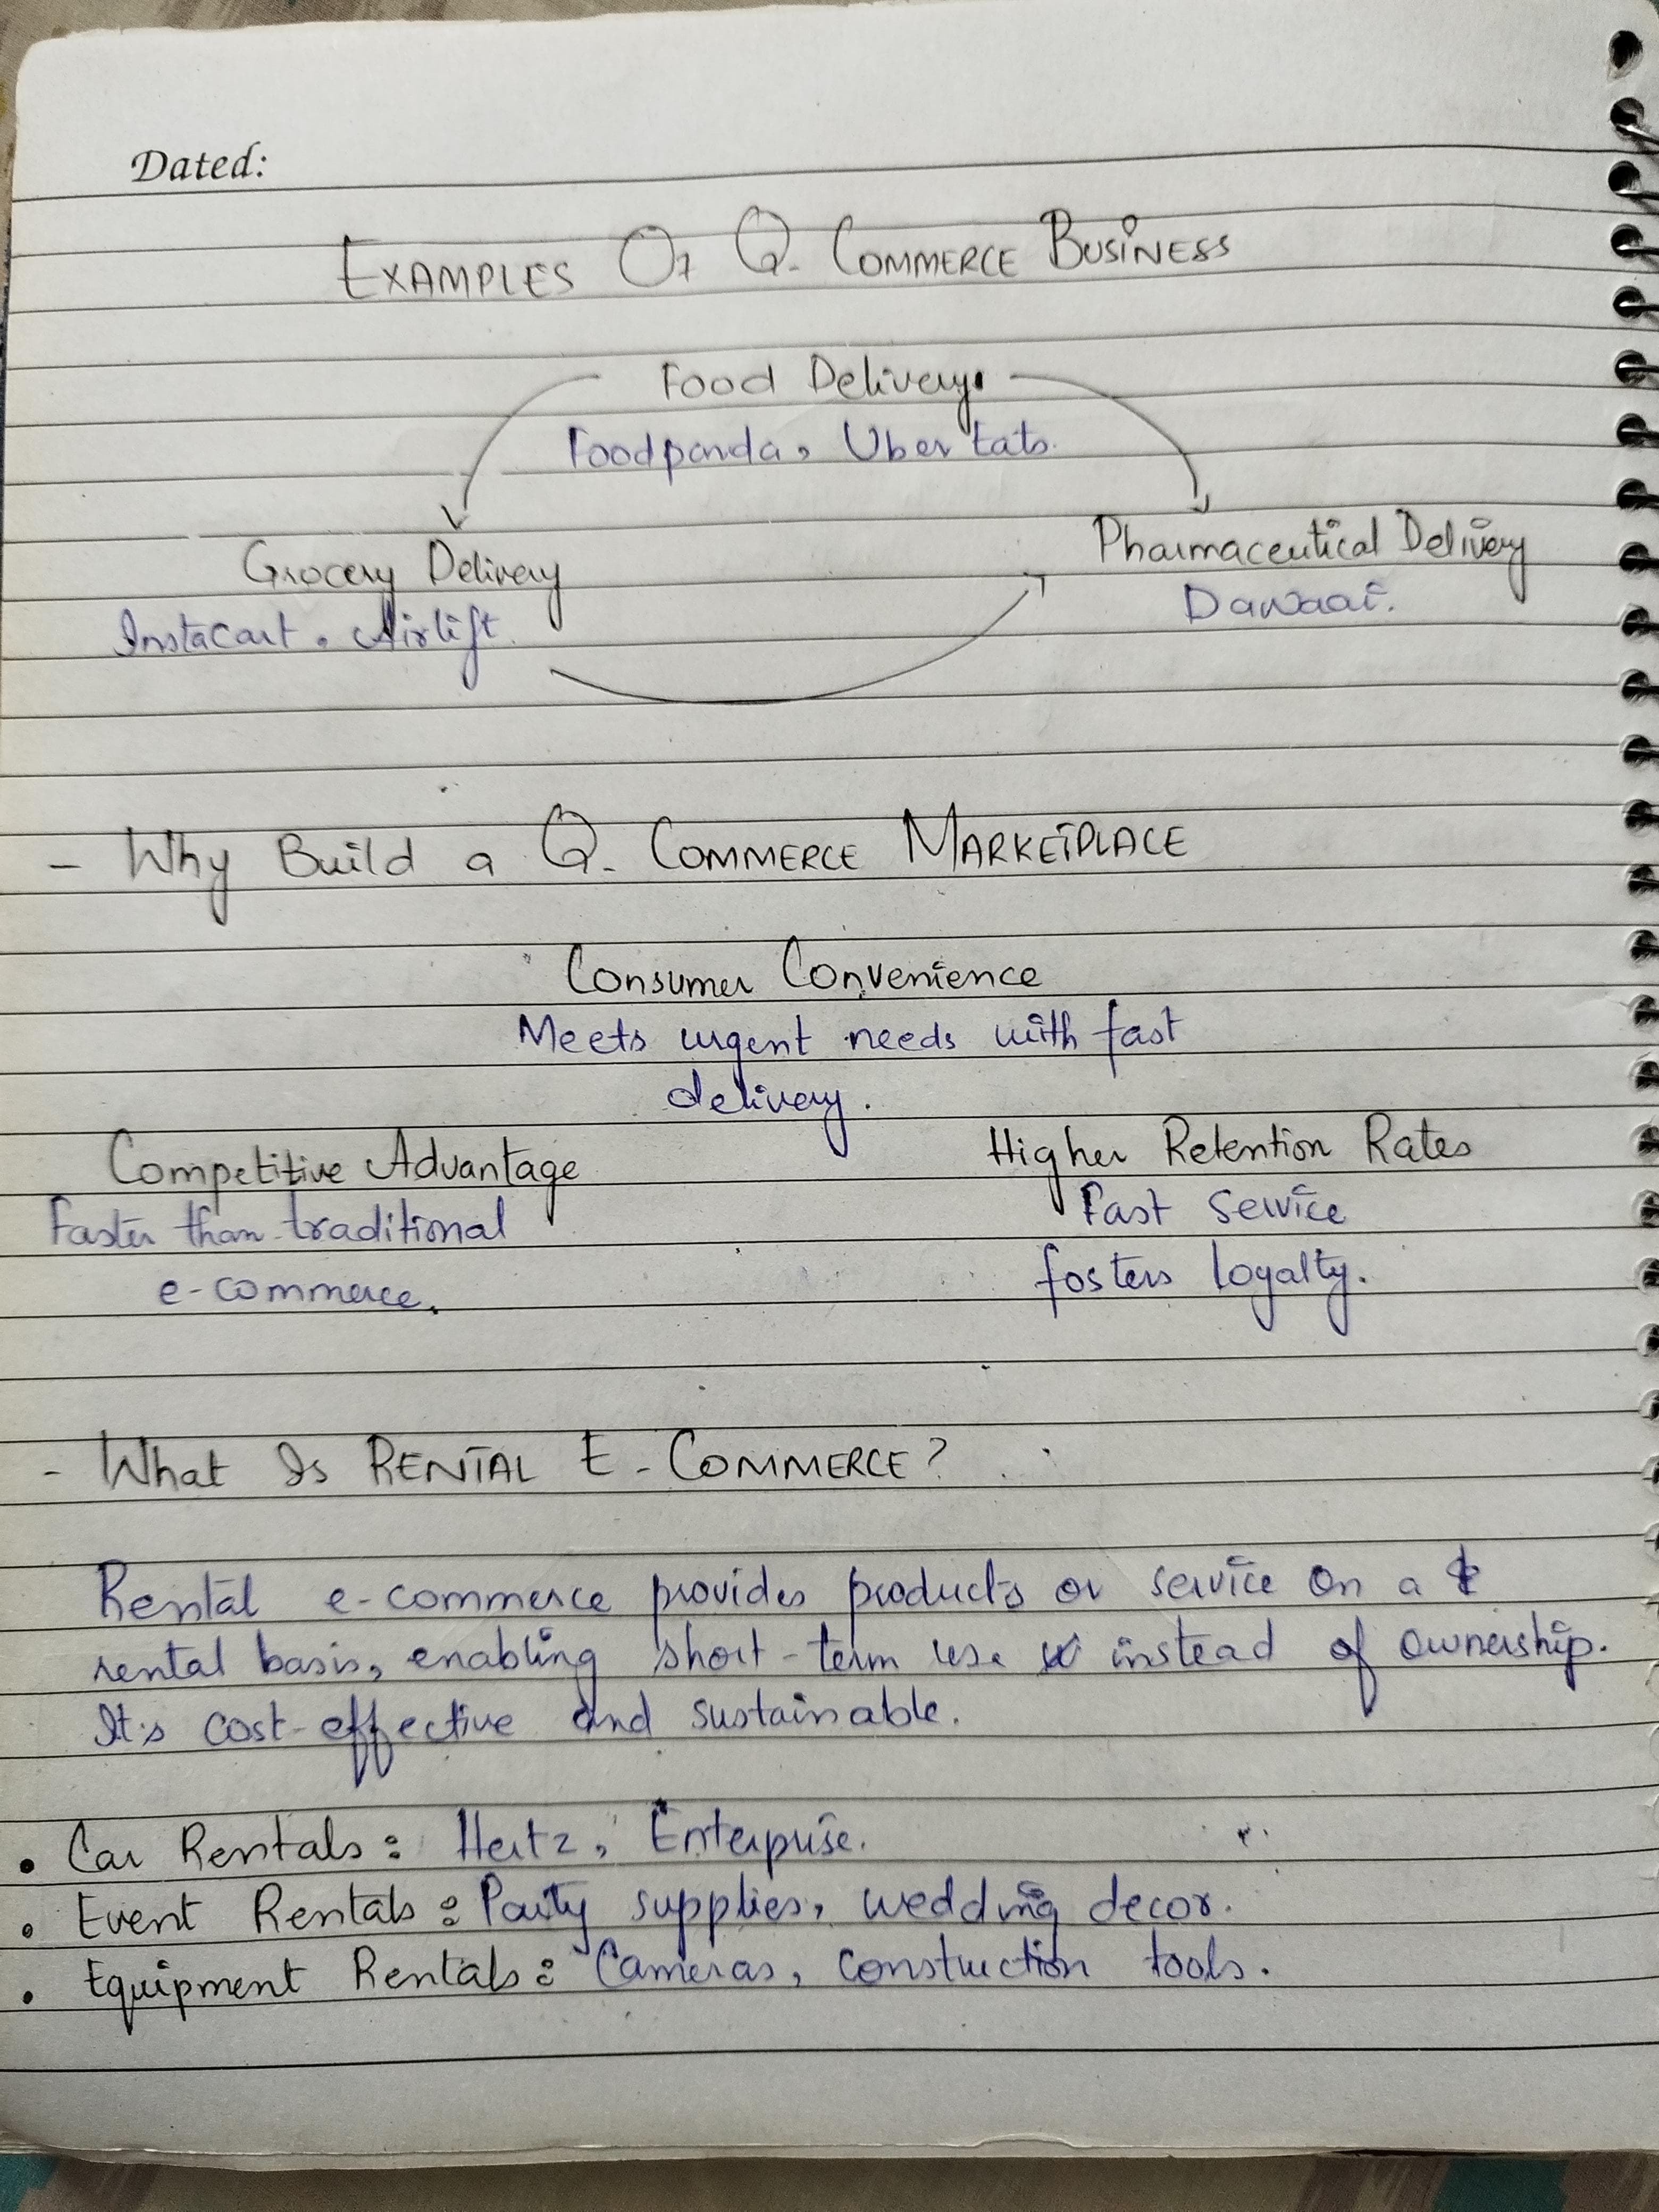 Dated:
EXAMPLES Of Q- COMMERCE BUSINESS
Food Delivery.
Foodpanda, Uber Eats.
Grocery Delivery
Instacart, Airlift.
Pharmaceutical Delivery
Dawaai.
- Why Build a Q- COMMERCE MARKETPLACE
Consumer Convenience
Meets urgent needs with fast
delivery.
Competitive Advantage
Faster than traditional
e-commerce.
Higher Retention Rates
Fast Service
fosters loyalty.
- What Is RENTAL E-COMMERCE?
Rental e-commerce provides products or service on a
rental basis, enabling short-term use instead of ownership.
It's cost-effective and sustainable.
• Car Rentals: Hertz, Enterprise.
• Event Rentals: Party supplies, wedding decor.
• Equipment Rentals: Cameras, construction tools.